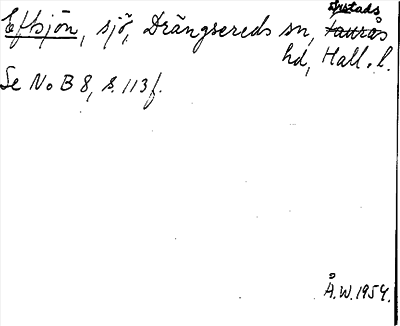 Årstads
Eftsjön, sjö, Drängsereds sn, Faurås
hd, Hall. l.
Se No B 8, s. 113 f.
Å.W. 1954.